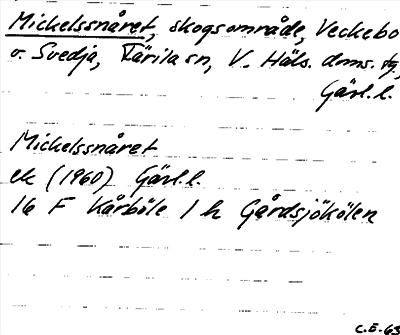 Mickelssnåret, skogsområde, Veckebo
o. Svedja, Färila sn, V. Häls. doms. tg,
Gävl. l.
Mickelssnåret
ek (1960) Gävl. l.
16 F Kårböle 1 h Gårdsjökölen
C.E. 63